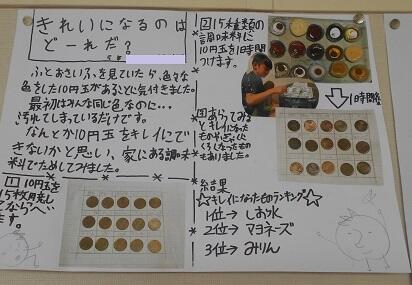 きれいになるのは
どーれだ?
ふとおさいふを見ていたら、色々な
色をした10円玉があることに気付きました。
最初はみんな同じ色なのに…
汚れてしまっているだけです。
なんとか10円玉をキレイにで
きないかと思い、家にある調味
料でためしてみました。
1 10円玉を
15枚用意し
ならべ
ます。
2 15種類の
調味料に
10円玉を1時間
つけます。
1時間後
3 あらってみる
とキレイになった
ものもありました。
結果
☆キレイになったものランキング☆
1位→しお水
2位→マヨネーズ
3位→みりん